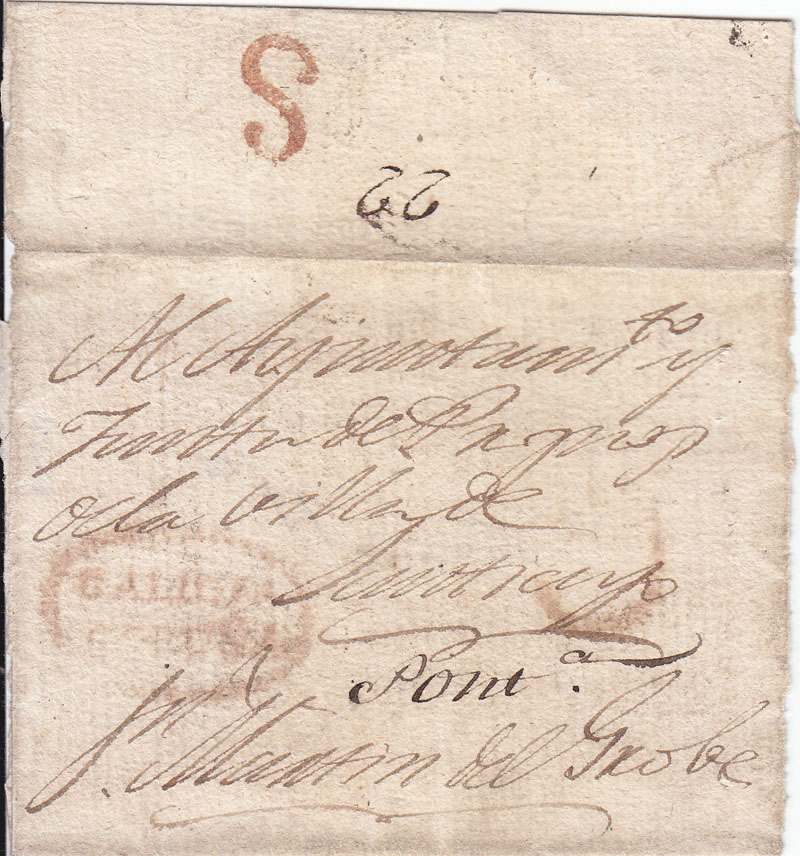 8
22
Al Ayuntam.to y
Junta de Propios
de la Villa de
Santiago
Pont.a
Sn. Martin del Grobe